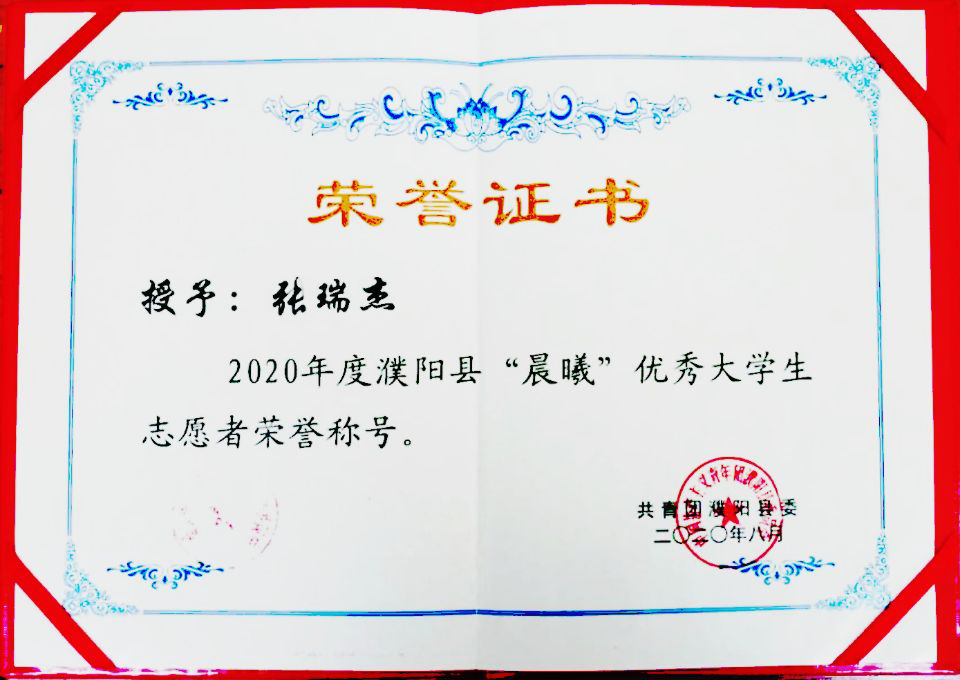 荣誉证书
授予：张瑞杰
2020年度濮阳县“晨曦”优秀大学生
志愿者荣誉称号。
共青团濮阳县委
二〇二〇年八月